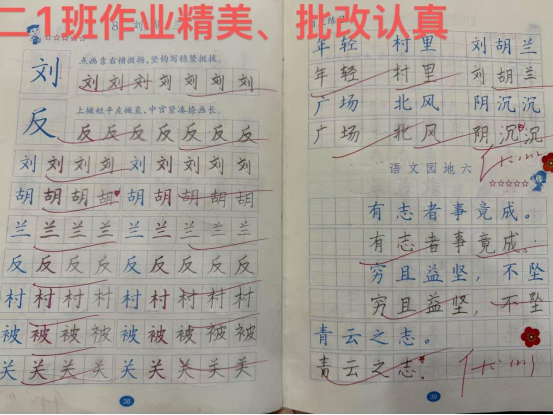 二1班作业精美、批改认真
刘
点画靠右横撇扬，竖钩写稳竖挺拔。
刘刘刘刘刘刘刘
反
上撇短平左撇直，中宫紧凑捺画长。
反反反反反反反
刘刘刘刘刘刘刘刘
胡胡胡胡胡胡胡胡
兰兰兰兰兰兰兰兰
反反反反反反反反
村村村村村村村村
被被被被被被被被
关关关关关关关关
38
年轻 村里 刘胡兰
年轻 村里 刘胡兰
广场 北风 阴沉沉
广场 北风 阴沉沉
语文园地六
有志者事竟成。
有志者事竟成。
穷且益坚，不坠
穷且益坚，不坠
青云之志。
青云之志。
39